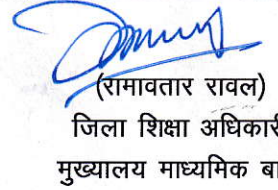 (रामावतार रावल)
जिला शिक्षा अधिकारी
मुख्यालय माध्यमिक